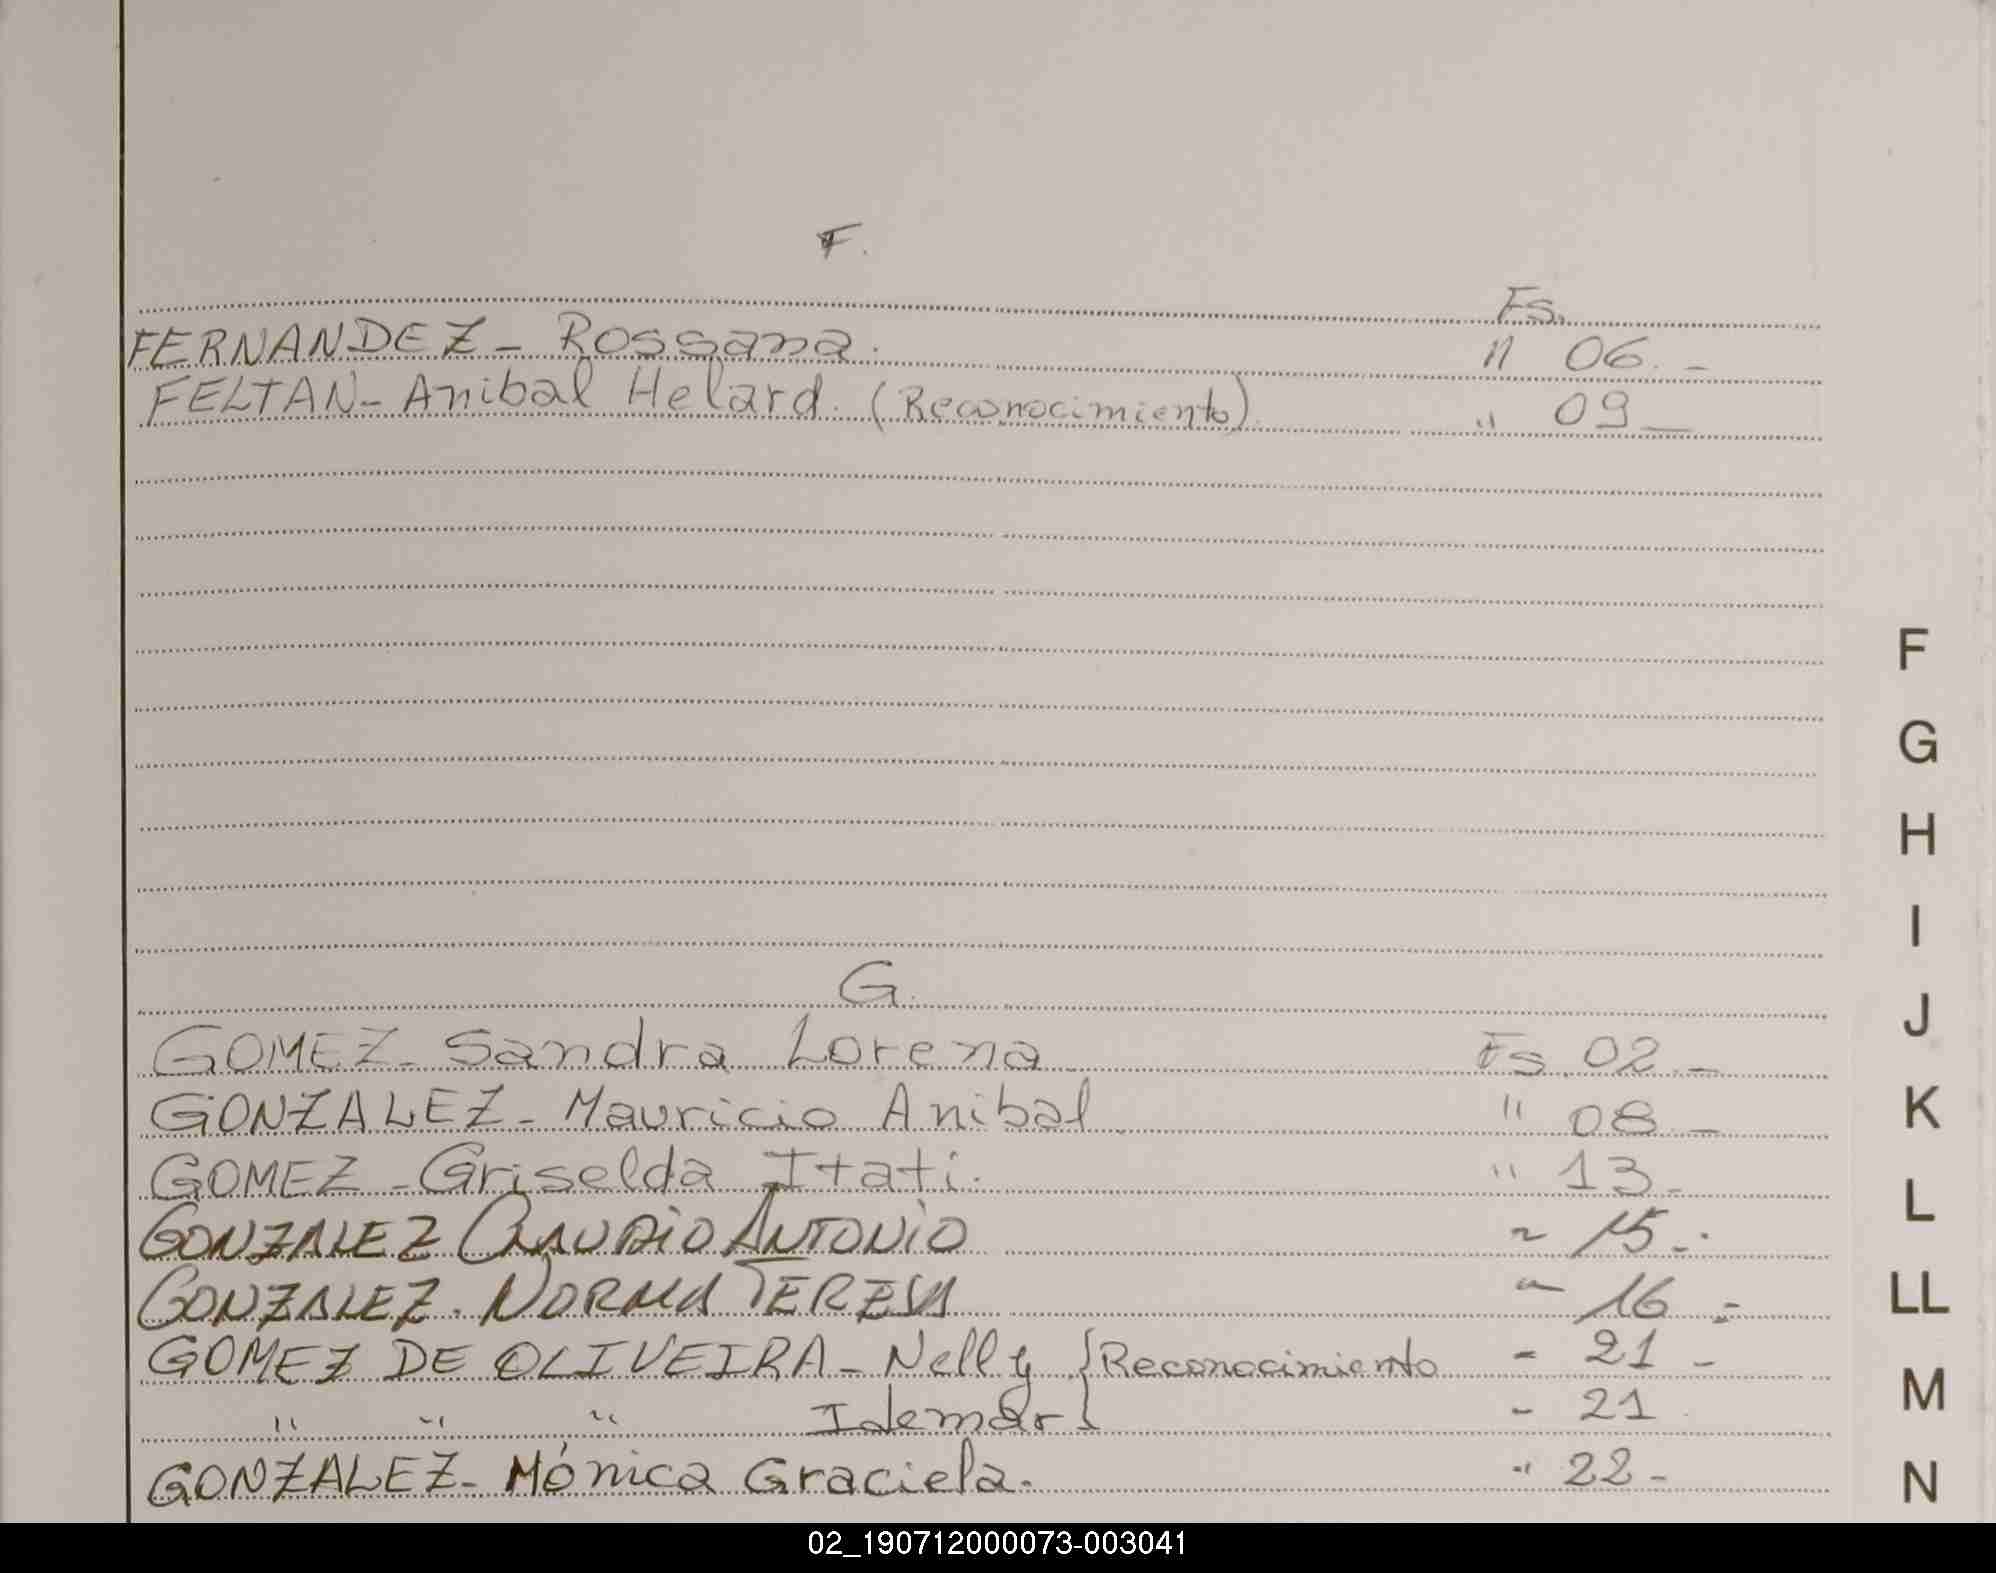 F.
Fs.
FERNANDEZ - Rossana. " 06. -
FELTAN - Anibal Helard. (Reconocimiento). " 09 _
F
G
H
I
G.
J
GOMEZ - Sandra Lorena Fs. 02. -
GONZALEZ - Mauricio Anibal " 08 -
K
GOMEZ - Griselda Itati. " 13 -
L
GONZALEZ CLAUDIO ANTONIO " 15 -.
GONZALEZ. NORMA TERESA " 16 -
LL
GOMEZ DE OLIVEIRA - Nelly { Reconocimiento " 21 -
M
" " " Idemar } - 21
GONZALEZ - Mónica Graciela. " 22 -
N
02_190712000073-003041